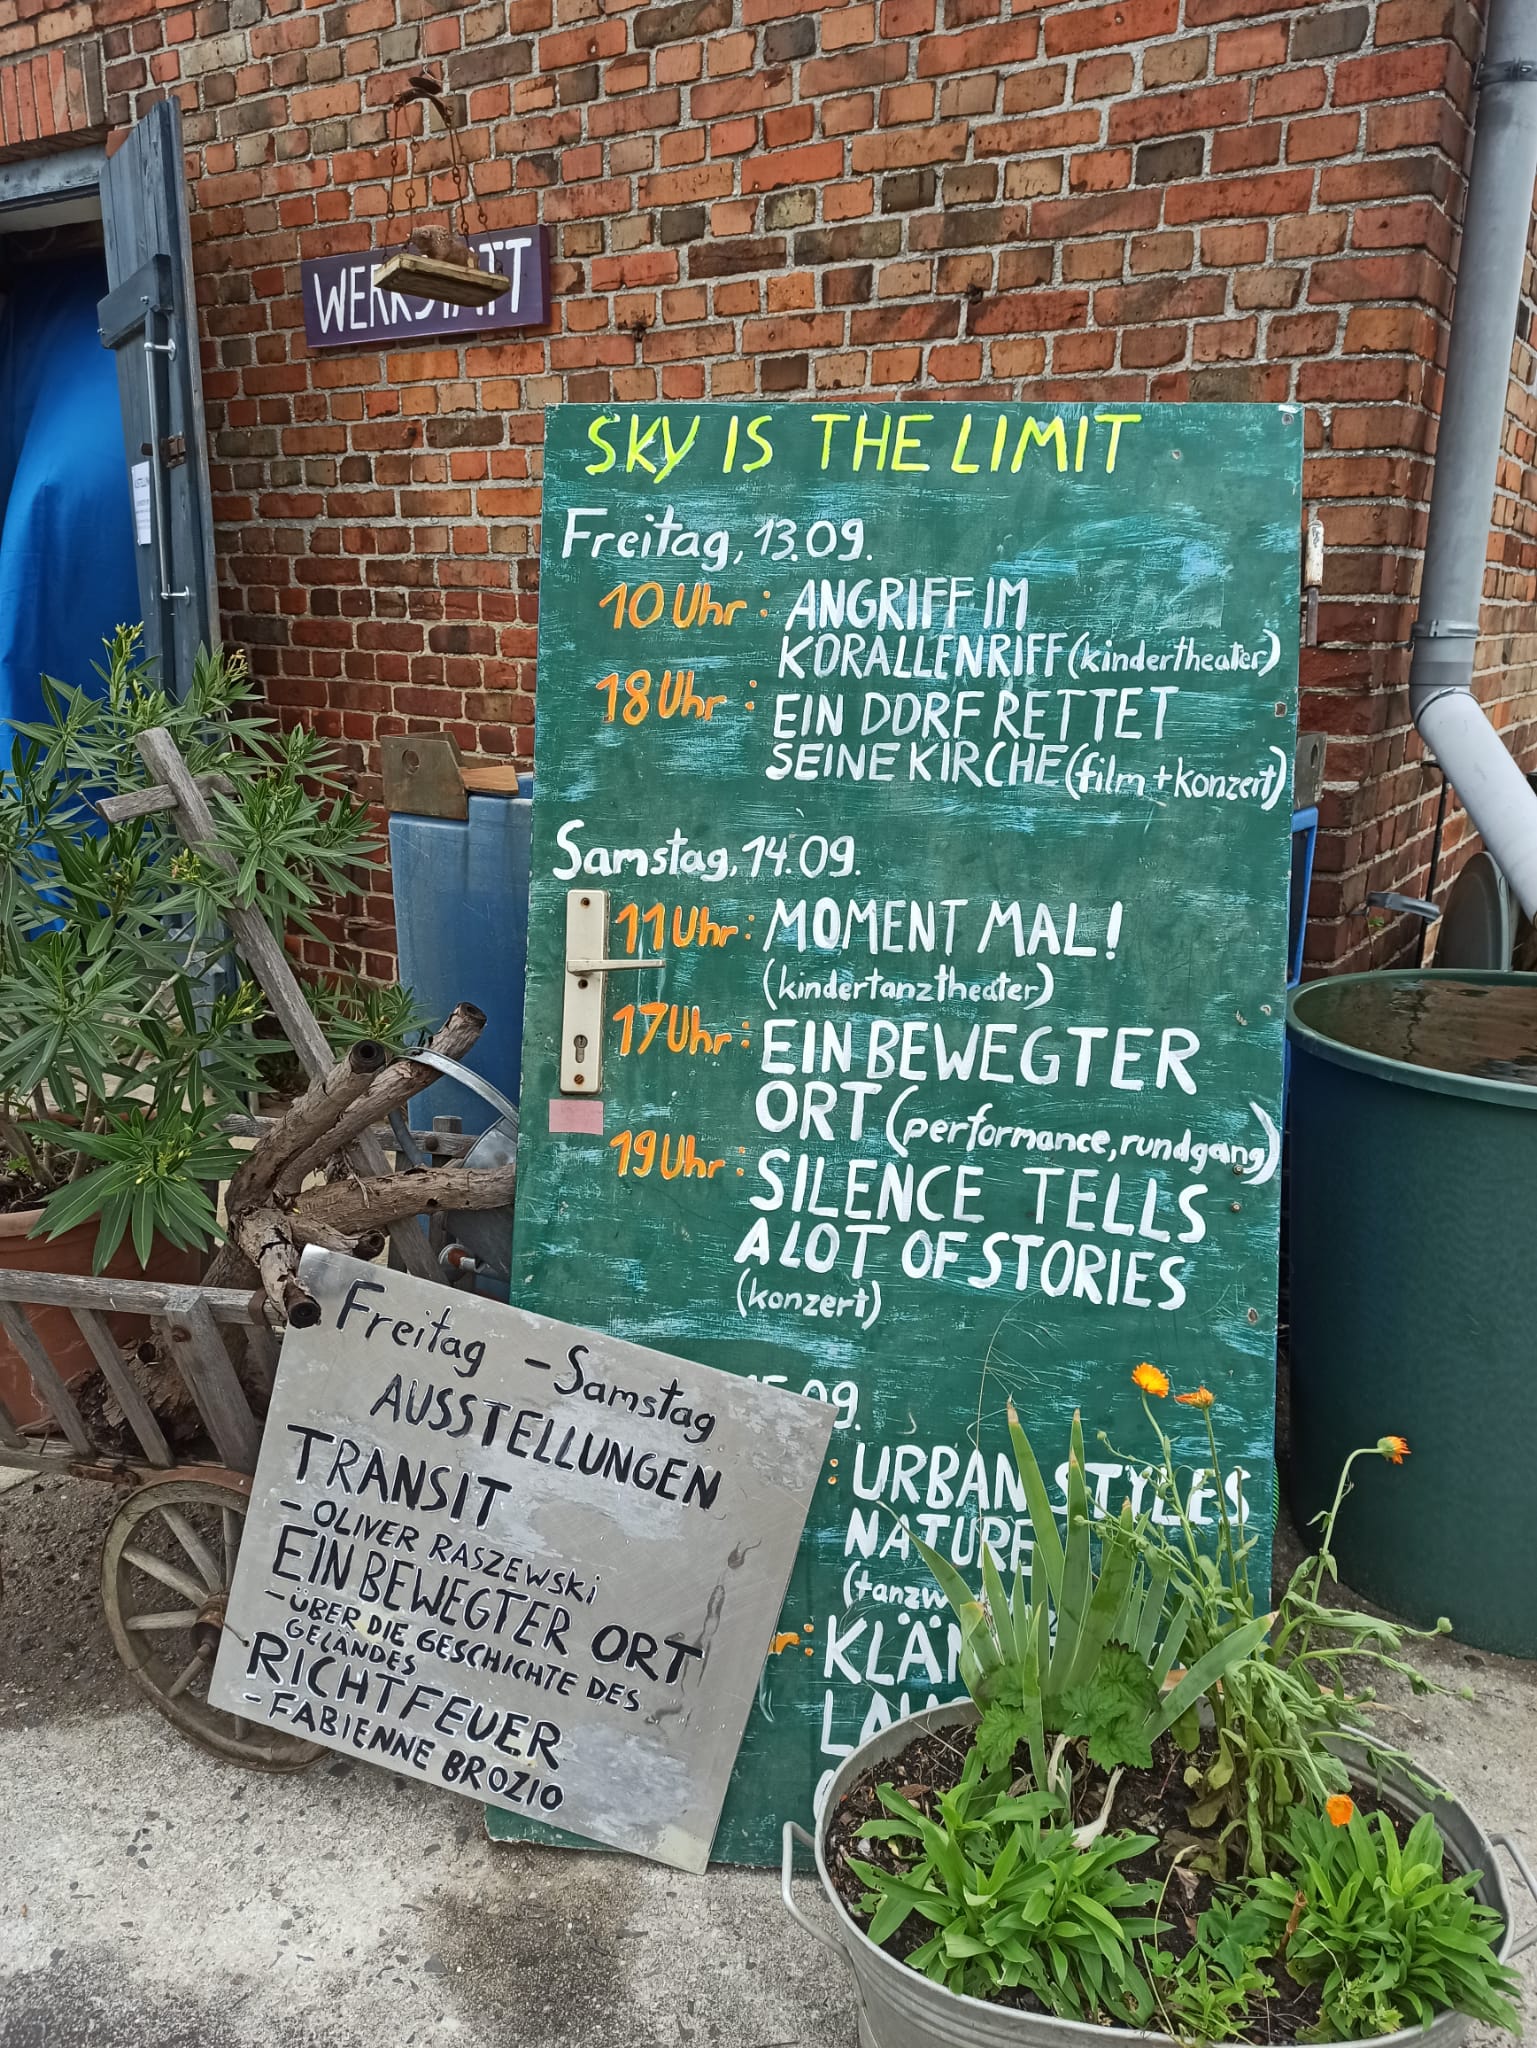 WERKSTATT
SKY IS THE LIMIT
Freitag, 13.09.
10 Uhr: ANGRIFF IM
KORALLENRIFF (kindertheater)
18 Uhr: EIN DORF RETTET
SEINE KIRCHE (film + konzert)
Samstag, 14.09.
11 Uhr: MOMENT MAL!
(kindertanztheater)
17 Uhr: EIN BEWEGTER
ORT (performance, rundgang)
19 Uhr: SILENCE TELLS
A LOT OF STORIES
(konzert)
15.09.
: URBAN STYLES
NATURE
Freitag - Samstag
AUSSTELLUNGEN
TRANSIT
- OLIVER RASZEWSKI
EIN BEWEGTER ORT
- ÜBER DIE GESCHICHTE DES
GELÄNDES
RICHTFEUER
- FABIENNE BROZIO